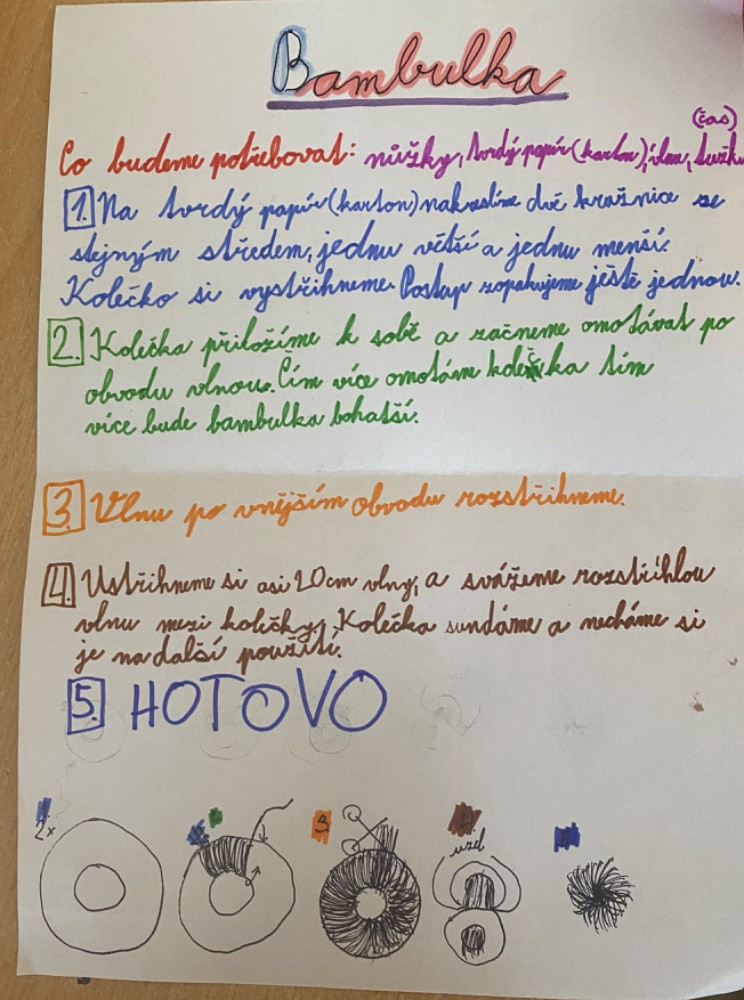 Bambulka
(čas)
Co budeme potřebovat: nůžky, tvrdý papír (karton), vlnu, tužku
1. Na tvrdý papír (karton) nakreslíme dvě kružnice se
stejným středem, jednu větší a jednu menší.
Kolečko si vystřihneme. Postap zopakujeme ještě jednou.
2. Kolečka přiložíme k sobě a začneme omotávat po
obvodu vlnou. Čím více omotáme kolečka tím
více bude bambulka bohatší.
3. Vlnu po vnějším obvodu rozstřihneme.
4. Ustřihneme si asi 20cm vlny, a svážeme rozstřihlou
vlnu mezi kolečky. Kolečka sundáme a necháme si
je na další použití.
5. HOTOVO
1. 2x
3
4. uzel
5.